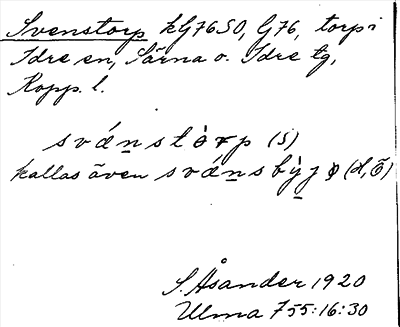 Svenstorp kG76SO, G76, torp i
Idre sn, Särna o. Idre tg,
Kopp. l.
svǽnstòrp (S)
kallas även svǽnsby̌j (d, Ö)
S. Åsander 1920
Ulma 755:16:30